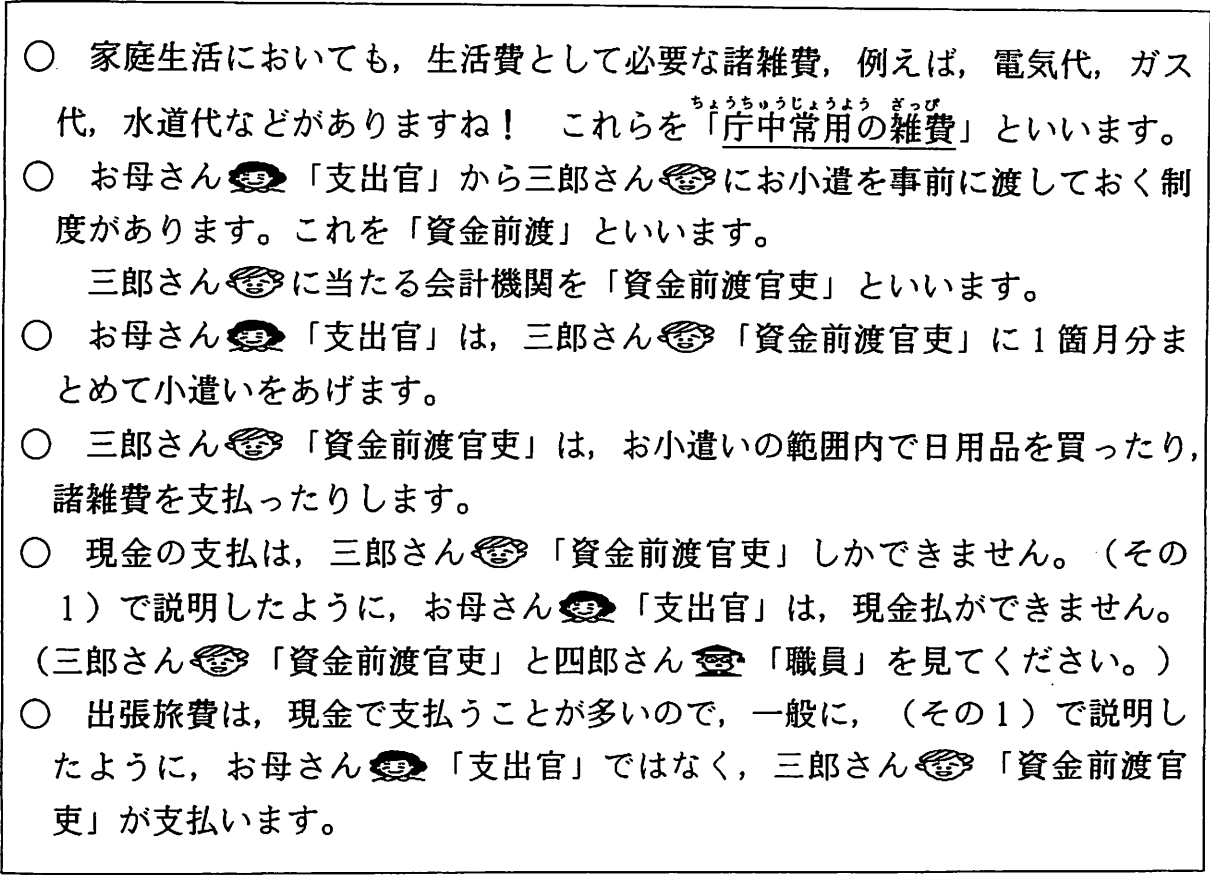 ○ 家庭生活においても，生活費として必要な諸雑費，例えば，電気代，ガス
代，水道代などがありますね！ これらを「庁中常用の雑費」といいます。
ちょうちゅうじょうよう ざっぴ
○ お母さん「支出官」から三郎さんにお小遣を事前に渡しておく制
度があります。これを「資金前渡」といいます。
三郎さんに当たる会計機関を「資金前渡官吏」といいます。
○ お母さん「支出官」は，三郎さん「資金前渡官吏」に１箇月分ま
とめて小遣いをあげます。
○ 三郎さん「資金前渡官吏」は，お小遣いの範囲内で日用品を買ったり，
諸雑費を支払ったりします。
○ 現金の支払は，三郎さん「資金前渡官吏」しかできません。（その
１）で説明したように，お母さん「支出官」は，現金払ができません。
（三郎さん「資金前渡官吏」と四郎さん「職員」を見てください。）
○ 出張旅費は，現金で支払うことが多いので，一般に，（その１）で説明し
たように，お母さん「支出官」ではなく，三郎さん「資金前渡官
吏」が支払います。